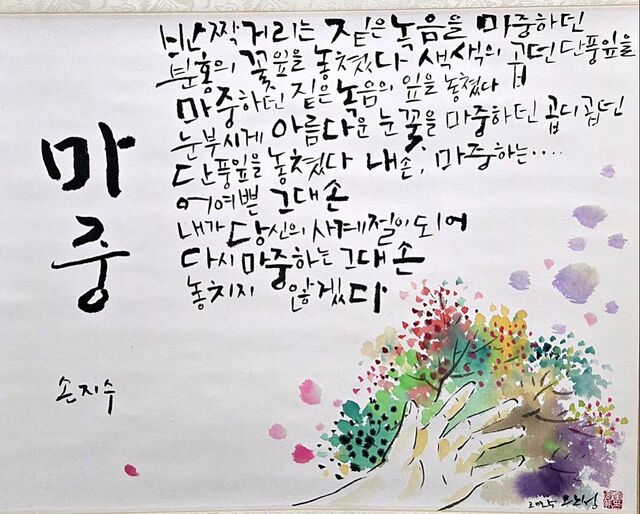 마중
손지수
반짝거리는 짙은 녹음을 마중하던
분홍의 꽃잎을 놓쳤다 색색의 곱던 단풍잎을
마중하던 짙은 녹음의 잎을 놓쳤다
눈부시게 아름다운 눈꽃을 마중하던 곱디곱던
단풍잎을 놓쳤다 내손, 마중하는....
어여쁜 그대 손
내가 당신의 사계절이 되어
다시 마중하는 그대 손
놓치지 않겠다
2025